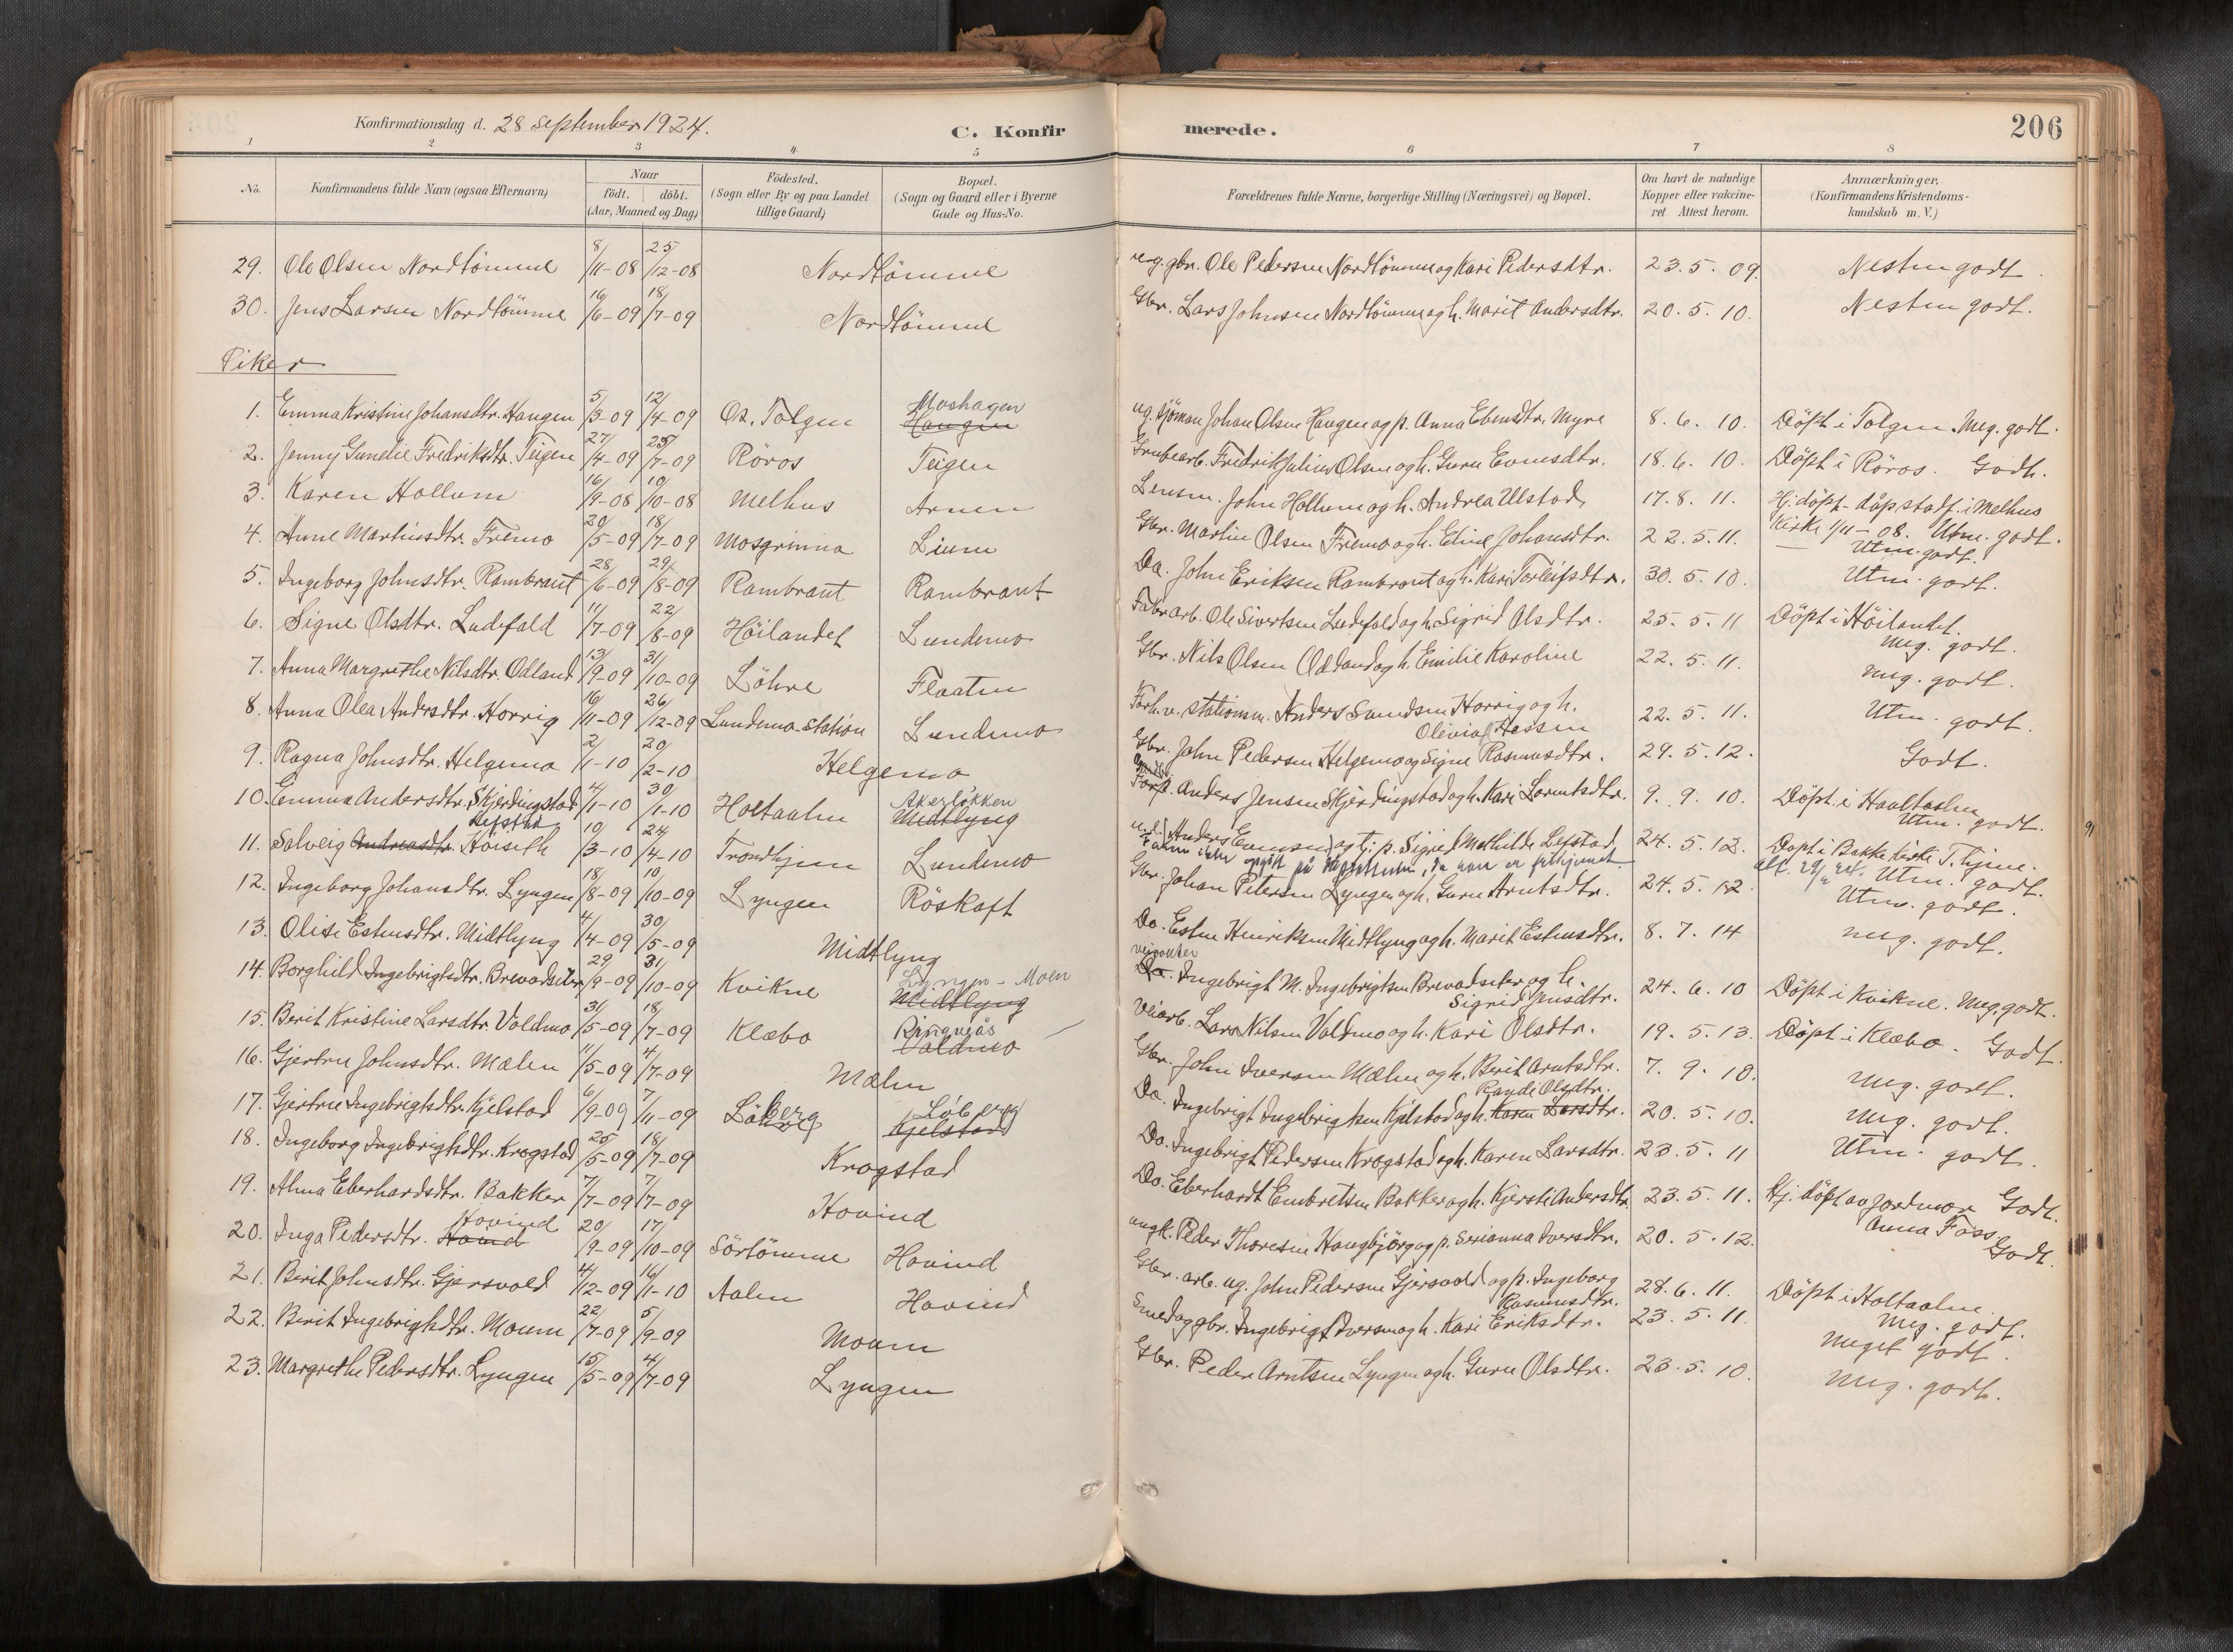 Konfirmationsdag d. 28 september 1924.
C. Konfirmerede.
206
1 2 3 4 5 6 7 8
No. Konfirmandens fulde Navn (ogsaa Efternavn)
Naar
födt. döbt.
(Aar, Maaned og Dag)
Födested.
(Sogn eller By og paa Landet
tillige Gaard)
Bopæl.
(Sogn og Gaard eller i Byerne
Gade og Hus-No.
Forældrenes fulde Navne, borgerlige Stilling (Næringsvei) og Bopæl.
Om havt de naturlige
Kopper eller vakcine-
ret Attest herom.
Anmærkninger.
(Konfirmandens Kristendoms-
kundskab m. V.)
29. Ole Olsen Nordtömme 8/11-08 25/12-08 Nordtömme gbr. Ole Pedersen Nordtömme og Kari Pedersdtr. 23.5.09. Nesten godt.
30. Jens Larsen Nordtömme 16/6-09 18/7-09 Nordtömme Gbr. Lars Johnsen Nordtömme og h. Marit Andersdtr. 20.5.10. Nesten godt.
Piker
1. Emma Kristine Johansdtr. Haugen 5/3-09 12/4-09 Os. Tolgen Moshagen Haugen ug. sjöman Johan Olsen Haugen og p. Anna Ebensdtr. Myre 8.6.10. Döpt i Tolgen. Meg. godt.
2. Jenny Gunelie Fredriksdtr. Teigen 27/4-09 25/7-09 Röros Teigen Grubearb. Fredrik Julius Olsen og h. Guru Evensdtr. 18.6.10. Döpt i Röros. Godt.
3. Karen Hollum 16/9-08 19/10-08 Melhus Arnen Lensm. John Hollum og h. Andrea Ulstad 17.8.11. Hj. döpt - dåp stadf. i Melhus
Kirke 1/11-08. Utm. godt.
4. Anne Martinsdtr. Fremo 20/5-09 18/7-09 Mosgrinna Lium Gbr. Martin Olsen Fremo og h. Eline Johansdtr. 22.5.11. Utm. godt.
5. Ingeborg Johnsdtr. Rambraut 28/6-09 29/8-09 Rambraut Rambraut Do. John Eriksen Rambraut og h. Kari Torleifsdtr. 30.5.10. Utm. godt.
6. Signe Olsdtr. Ludefald 11/7-09 22/8-09 Höilandet Lundemo Fabr. arb. Ole Sivertsen Ludefald og h. Sigrid Olsdtr. 25.5.11 Döpt i Höilandet.
Meg. godt.
7. Anna Margrethe Nilsdtr. Ödland 13/9-09 31/10-09 Löhre Flaaten Gbr. Nils Olsen Ödland og h. Emilie Karoline 22.5.11. Meg. godt.
8. Anna Olea Andersdtr. Horrig 16/11-09 26/12-09 Lundemo Station Lundemo Forh. v. stationsm. Anders Svendsen Horrig og h.
Olivia Hessen 22.5.11. Utm. godt.
9. Ragna Johnsdtr. Helgemo 2/1-10 20/2-10 Helgemo Gbr. John Pedersen Helgemo og Signe Rasmusdtr. 29.5.12. Godt.
10. Emma Andersdtr. Skjerdingstad 4/1-10 30/1-10 Holtaalen Akerløkken Midtlyng Forp. Anders Jensen Skjerdingstad og h. Kari Larntsdtr. 9.9.10. Döpt i Haaltaalen
Utm. godt.
11. Solveig Andreasdtr. Lefstad Hörseth 10/3-10 24/4-10 Trondhjem Lundemo Anders Evensen og tj. p. Sigrid Mathilde Lefstad 24.5.12. Döpt i Bakke kirke T. hjem.
Utm. godt.
12. Ingeborg Johansdtr. Lyngen 18/8-09 10/10-09 Lyngen Röskaft Gbr. Johan Petersen Lyngen og h. Guru Arntsdtr. 24.5.12. Utm. godt.
13. Olise Estensdtr. Midtlyng 4/4-09 30/5-09 Midtlyng Do. Esten Henriksen Midtlyng og h. Marit Estensdtr. 8.7.14 Meg. godt.
14. Borghild Ingebrigtsdtr. Brevadseter 29/9-09 31/10-09 Kvikne Lyngen - Moen Midtlyng Do. Ingebrigt M. Ingebrigtsen Brevadseter og h.
Sigrid Jensdtr. 24.6.10 Döpt i Kvikne. Meg. godt.
15. Berit Kristine Larsdtr. Valdmo 31/5-09 18/7-09 Klæbo Ringveås Valdmo Veiarb. Lars Nilsen Valdmo og h. Kari Olsdtr. 19.5.13. Döpt i Klæbo. Godt.
16. Gjertru Johnsdtr. Mælen 11/5-09 4/7-09 Mælen Gbr. John Iversen Mælen og h. Berit Arntsdtr. 7.9.10. Meg. godt.
17. Gjertru Ingebrigtsdtr. Kjelstad 6/9-09 7/11-09 Löberg Løberg Kjelstad Do. Ingebrigt Ingebrigtsen Kjelstad og h. Karen Larsdtr. Randi Olsdtr. 20.5.10. Meg. godt.
18. Ingeborg Ingebrigtsdtr. Krogstad 25/5-09 18/7-09 Krogstad Do. Ingebrigt Pedersen Krogstad og h. Karen Larsdtr. 23.5.11 Utm. godt.
19. Alma Eberhardsdtr. Bakker 7/7-09 7/7-09 Hovind Do. Eberhardt Embretsen Bakker og h. Kjersti Andersdtr. 23.5.11. Hj. döpt av Jordmor Godt.
Anna Foss.
20. Inga Pedersdtr. Hovind 20/9-09 17/10-09 Sörtömme Hovind ungk. Peder Thoresen Haugbjörg og p. Serianna Iversdtr. 20.5.12. Godt.
21. Berit Johnsdtr. Gjersvold 4/12-09 16/1-10 Aalen Hovind Gbr. arb. ug. John Pedersen Gjersvold og p. Ingeborg
Rasmusdtr. 28.6.11. Döpt i Holtaalen.
Meg. godt.
22. Berit Ingebrigtsdtr. Moum 22/7-09 5/9-09 Moum Smed og gbr. Ingebrigt Iversen og h. Kari Eriksdtr. 23.5.11. Meget godt.
23. Margrethe Pedersdtr. Lyngen 15/5-09 4/7-09 Lyngen Gbr. Peder Arntsen Lyngen og h. Guru Olsdtr. 23.5.10. Meg. godt.